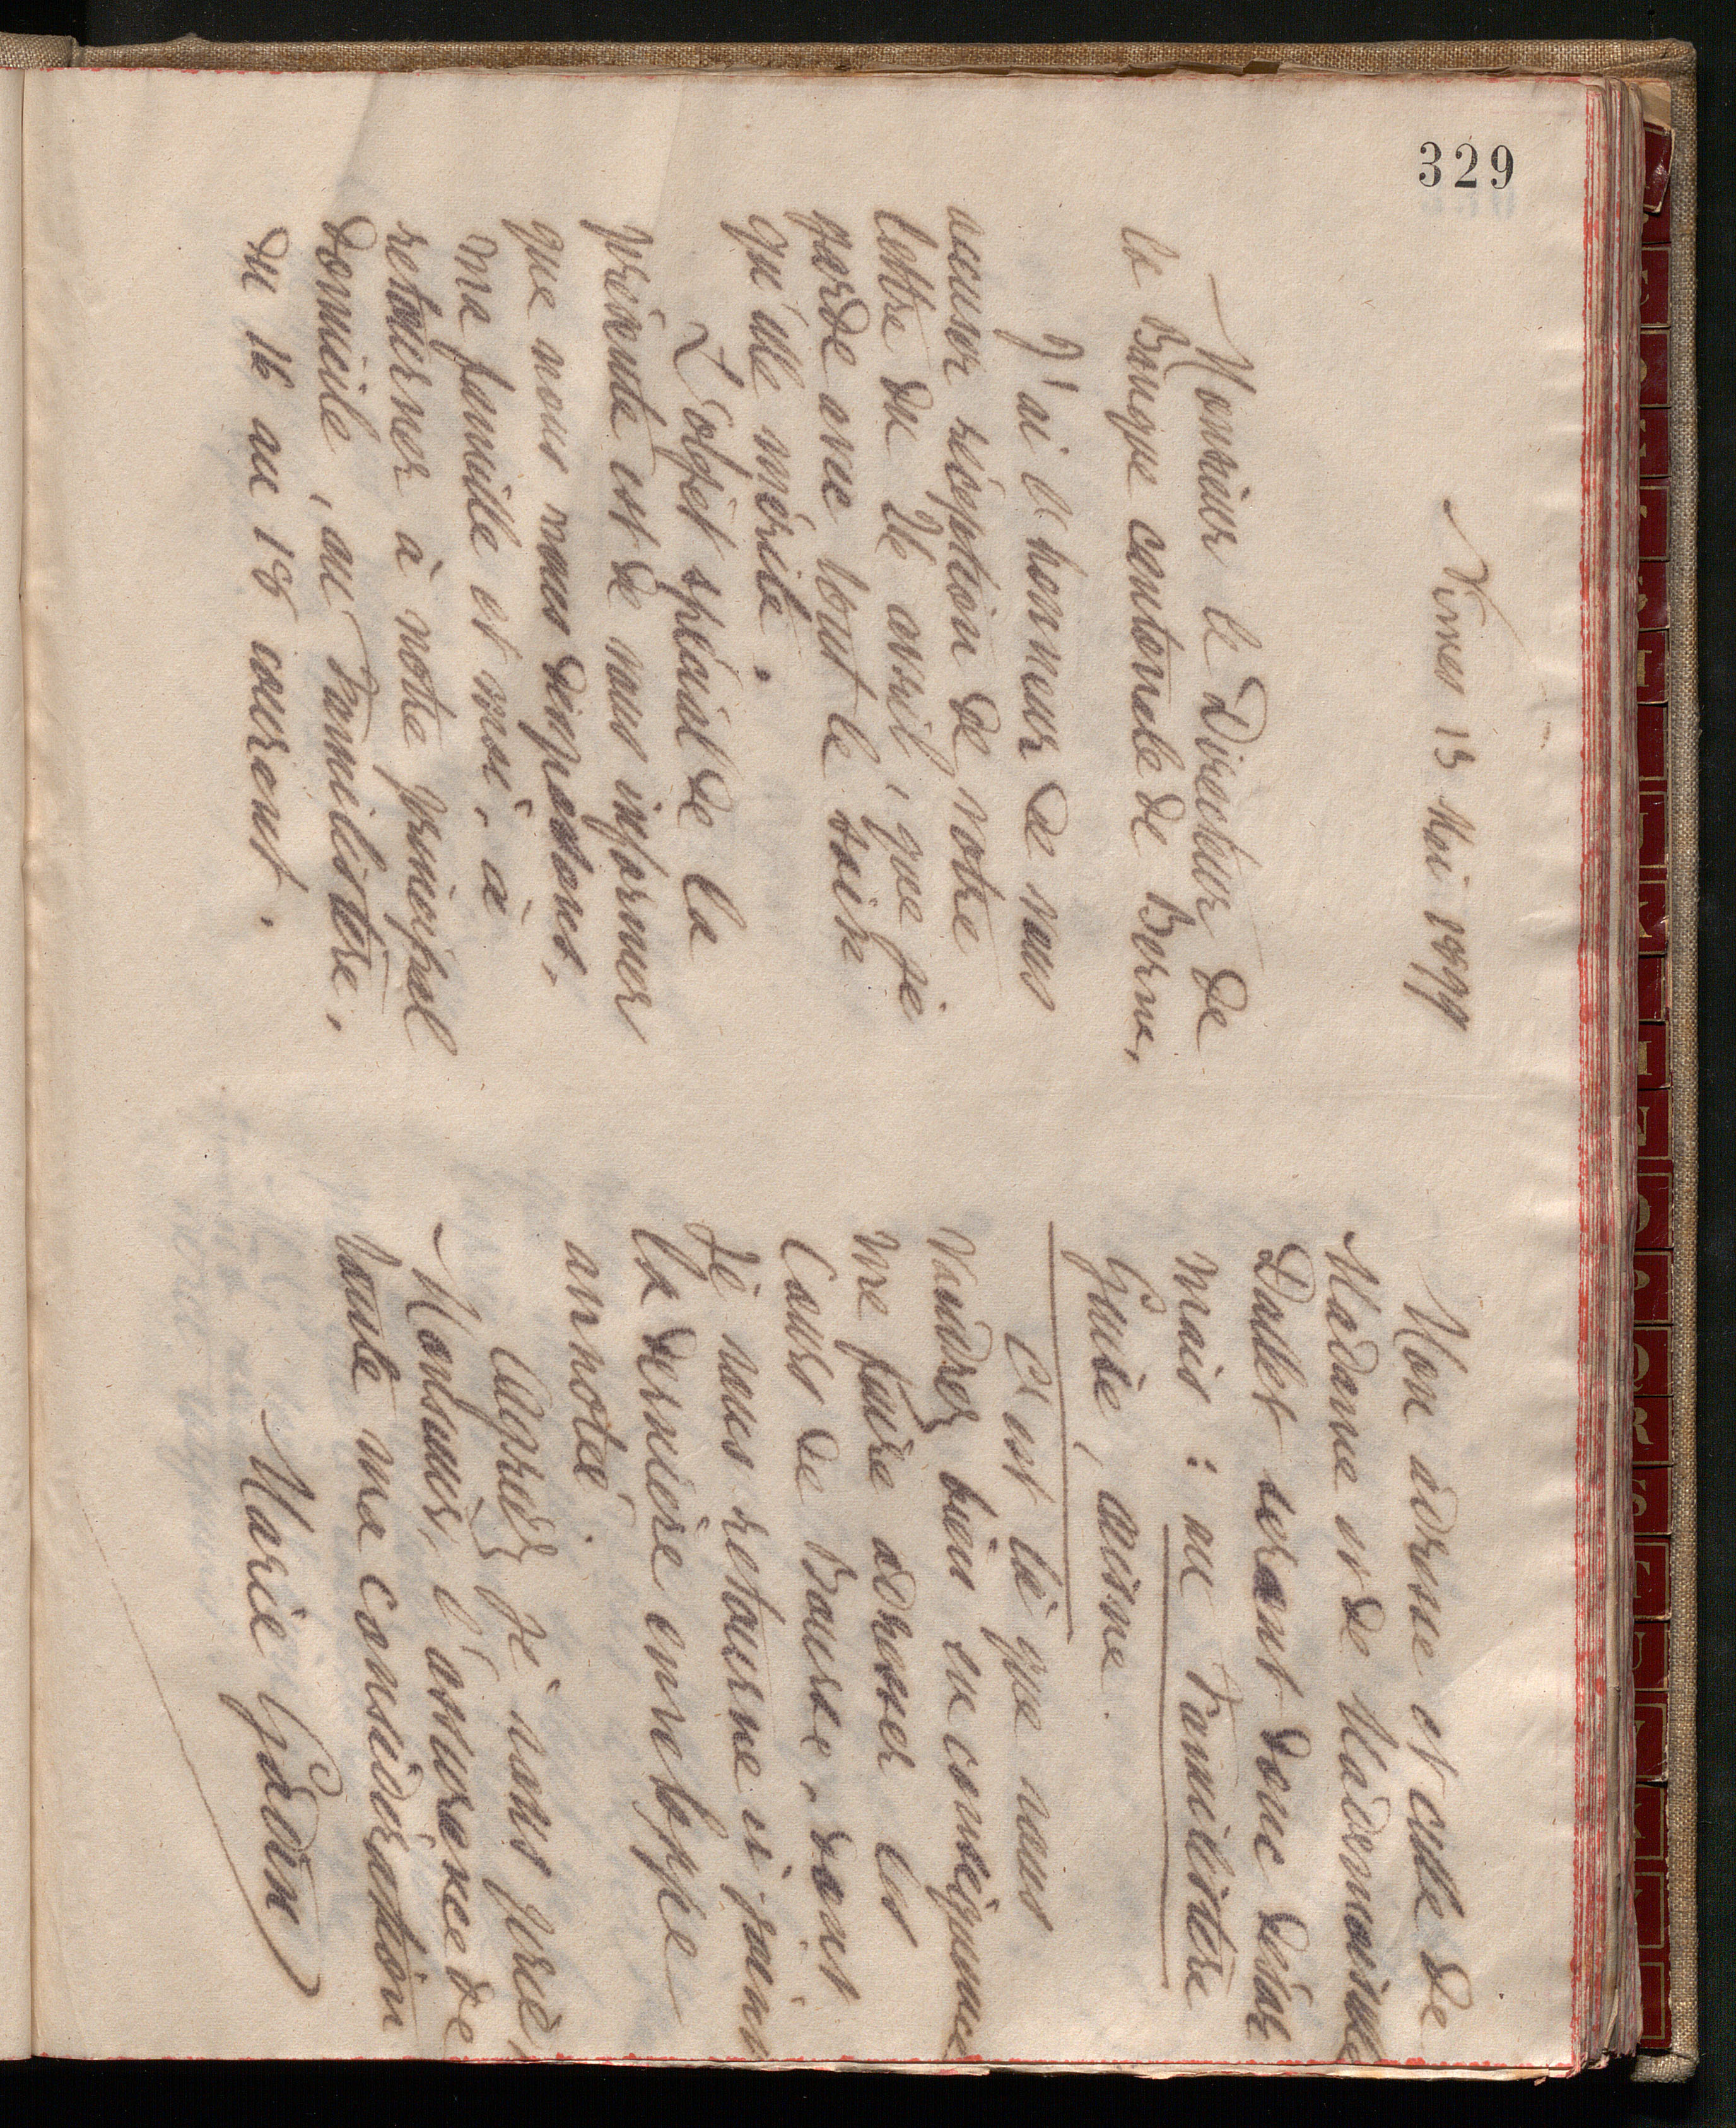 329
Nimes 13 Mai 1899
Monsieur le Directeur de
la Banque cantonale de Berne,
J'ai l'honneur de vous
accuser réception de votre
lettre du 26 avril, que je
garde avec tout le soin
qu'elle mérite.
L'objet spécial de la
présente est de vous informer
que nous nous disposons,
ma famille et moi, à
retourner à notre principal
domicile, au Familistère,
du 16 au 18 courant.
Mon adresse et celle de
Madame et de Mademoiselle
Dallet seront donc désor
mais : au Familistère
Guise, Aisne.
C'est là que vous
voudrez bien en conséquence
me faire adresser les
Cours de Bourse, dont
je vous retourne ci joint
la dernière enveloppe
annotée.
Agréez je vous prie,
Monsieur, l'assurance de
toute ma considération
Marie Godin